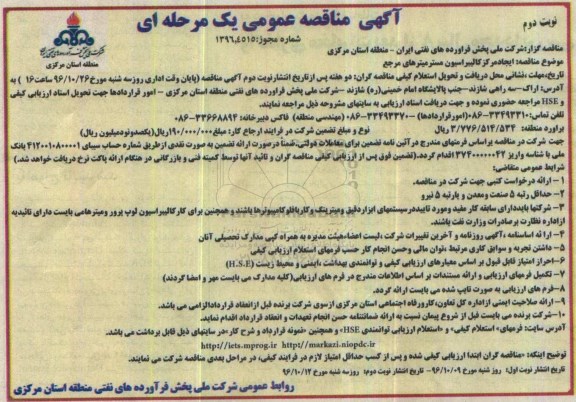 نوبت دوم
آگهی مناقصه عمومی یک مرحله ای
شماره مجوز: ۱۳۹۶،۴۵۱۵
منطقه استان مرکزی
مناقصه گزار: شرکت ملی پخش فراورده های نفتی ایران - منطقه استان مرکزی
موضوع مناقصه: ایجاد مرکز کالیبراسیون مسترمیترهای مرجع
تاریخ، مهلت، نشانی محل دریافت و تحویل استعلام کیفی مناقصه گران: دو هفته پس ازتاریخ انتشارنوبت دوم آگهی مناقصه (پایان وقت اداری روزسه شنبه مورخ ۹۶/۱۰/۲۶ ساعت ۱۶ ) به
آدرس: اراک–سه راهی شازند–جنب پالایشگاه امام خمینی(ره) شازند –شرکت ملی پخش فراورده های نفتی منطقه استان مرکزی - امور قراردادها جهت تحویل اسناد ارزیابی کیفی
و HSE مراجعه حضوری نموده و جهت دریافت اسناد ارزیابی به سایتهای مشروحه ذیل مراجعه نمایند.
تلفن تماس: ۳۳۴۹۳۳۱۰-۰۸۶ (امورقراردادها) ۳۳۴۹۳۳۷۰-۰۸۶ (مهندسی منطقه) فاکس دبیرخانه: ۳۳۶۶۸۸۹۴-۰۸۶
برآورد منطقه: ۳/۷۷۶/۵۱۴/۵۳۴ ریال نوع و مبلغ تضمین شرکت در فرایند ارجاع کار: مبلغ ۱۹۰/۰۰۰/۰۰۰ریال(یکصدونودمیلیون ریال)
جهت شرکت در مناقصه براساس فرمهای مندرج درآئین نامه تضمین برای معاملات دولتی.ضمناً درصورت ارائه تضمین به صورت نقدی ازطریق شماره حساب سیبای ۴۱۲۰۰۱۰۸۰۰۰۰۱ بانک
ملی با شناسه واریز ۳۷۴۰۰۰۰۰۰۴۲ اقدام گردد.(تضمین فوق پس از ارزیابی کیفی مناقصه گران و تائید آنها توسط کمیته فنی و بازرگانی در هنگام ارائه پاکت نرخ دریافت خواهد شد.)
شرایط عمومی متقاضی:
۱- ارائه درخواست کتبی جهت شرکت در مناقصه.
۲- حداقل رتبه ۵ صنعت ومعدن و یارتبه ۵ نیرو
۳- شرکتها بایددارای سابقه کار مفید ومورد تاییددرسیستمهای ابزاردقیق ومیترینگ وکاربافلوکامپیوترها باشند و همچنین برای کارکالیبراسیون لوپ پرور ومیترهامی بایست دارای تائیدیه
ازاداره نظارت برصادرات وزارت نفت باشند.
۴- ارا ئه اساسنامه ،آگهی روزنامه و آخرین تغییرات شرکت ،لیست اعضاءهیئت مدیره به همراه کپی مدارک تحصیلی آنان
۵- داشتن تجربه و سوابق کاری مرتبط ،توان مالی وحسن انجام کار حسب فرمهای استعلام ارزیابی کیفی
۶-احراز امتیاز قابل قبول بر اساس معیارهای ارزیابی کیفی و توانمندی بهداشت ،ایمنی و محیط زیست (H.S.E)
۷- تکمیل فرمهای ارزیابی و ارائه مستندات بر اساس اطلاعات مندرج در فرم های ارزیابی(کلیه مدارک می بایست مهر و امضا گردند)
۸-فرم های ارزیابی به صورت تایپ شده می بایست ارائه گردد.
۹- ارائه صلاحیت ایمنی ازاداره کل تعاون،کارورفاه اجتماعی استان مرکزی ازسوی شرکت برنده قبل ازانعقاد قراردادالزامی می باشد.
۱۰–شرکت برنده می بایست قبل از شروع پیمان نسبت به ارائه ضمانتنامه حسن انجام تعهدات و انعقاد قرارداد اقدام نماید.
آدرس سایت: فرمهای« استعلام کیفی» و «استعلام ارزیابی توانمندی HSE» و همچنین «نمونه قرارداد و شرح کار »درسایتهای ذیل قابل برداشت می باشد.
http://iets.mprog.ir http://markazi.niopdc.ir
توضیح اینکه: «مناقصه گران ابتدا ارزیابی کیفی شده و پس از کسب حداقل امتیاز لازم در فرایند کیفی، در مراحل بعدی مناقصه شرکت می نمایند.
تاریخ انتشار نوبت اول: روز شنبه مورخ ۹۶/۱۰/۰۹- تاریخ انتشار نوبت دوم: روزسه شنبه مورخ ۹۶/۱۰/۱۲
روابط عمومی شرکت ملی پخش فرآورده های نفتی منطقه استان مرکزی